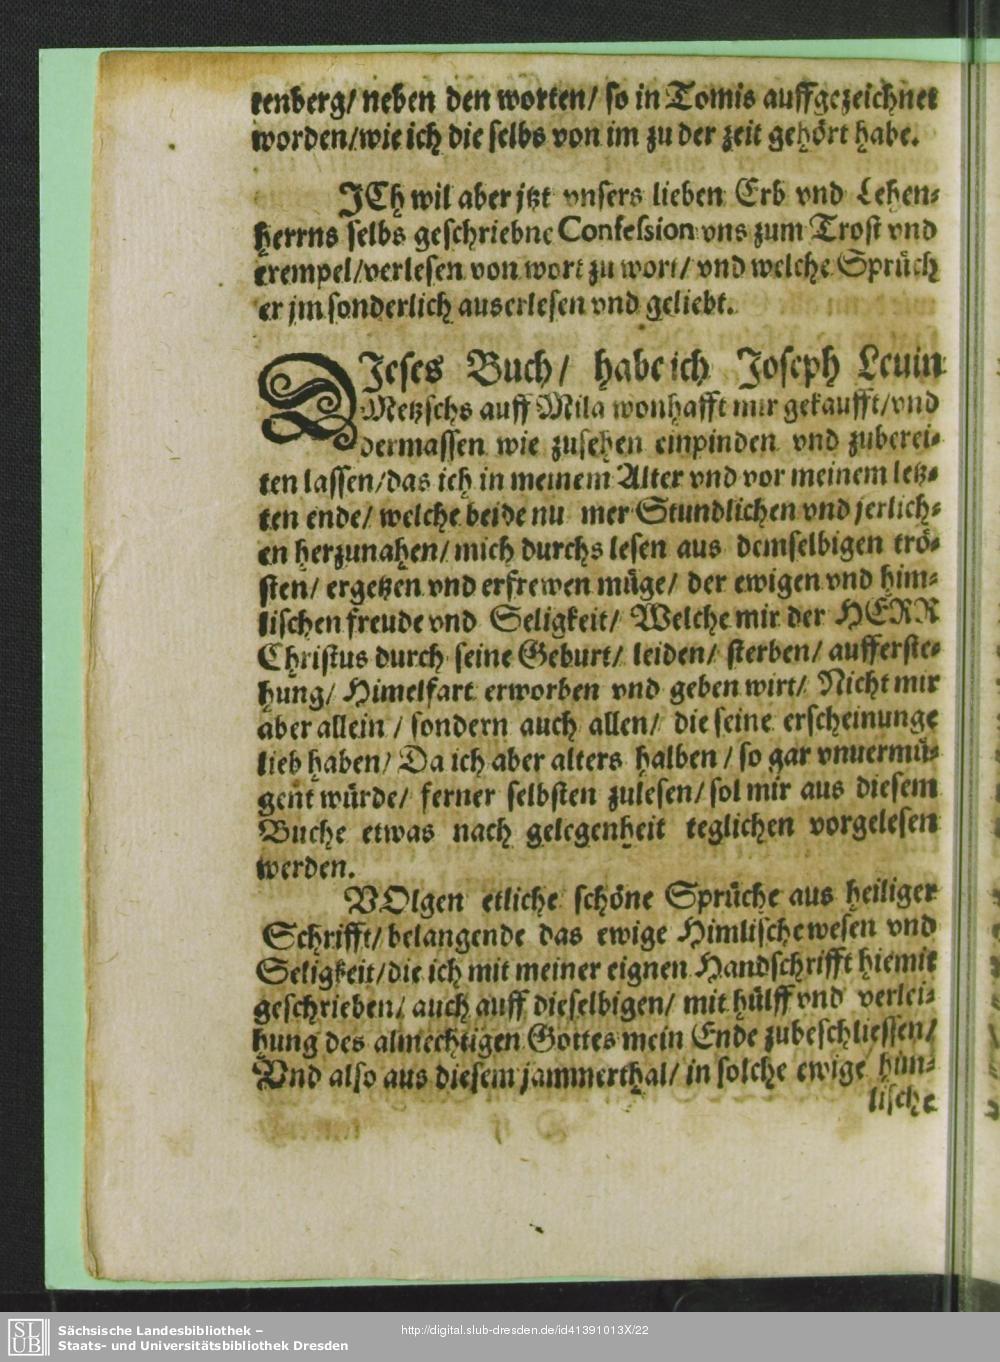 tenberg/ neben den worten/ so in Tomis auffgezeichnet
worden/ wie ich die selbs von im zu der zeit gehört habe.
JCh wil aber jtzt vnsers lieben Erb vnd Lehen⸗
herrns selbs geschriebne Confession vns zum Trost vnd
exempel/ verlesen von wort zu wort/ vnd welche Sprüch
er jm sonderlich auserlesen vnd geliebt.
DJeses Buch/ habe ich Joseph Leuin
Metzschs auff Mila wonhafft mir gekaufft/ vnd
dermassen wie zusehen einpinden vnd zuberei⸗
ten lassen/ das ich in meinem Alter vnd vor meinem letz⸗
ten ende/ welche beide nu mer Stundlichen vnd jerlich⸗
en herzunahen/ mich durchs lesen aus demselbigen trö⸗
sten/ ergetzen vnd erfrewen müge/ der ewigen vnd him⸗
lischen freude vnd Seligkeit/ Welche mir der HERR
Christus durch seine Geburt/ leiden/ sterben/ aufferste⸗
hung/ Himelfart erworben vnd geben wirt/ Nicht mir
aber allein / sondern auch allen/ die seine erscheinunge
lieb haben/ Da ich aber alters halben / so gar vnuermü⸗
gent würde/ ferner selbsten zulesen/ sol mir aus diesem
Buche etwas nach gelegenheit teglichen vorgelesen
werden.
VOlgen etliche schöne Sprüche aus heiliger
Schrifft/ belangende das ewige Himlische wesen vnd
Seligkeit/ die ich mit meiner eignen Handschrifft hiemit
geschrieben/ auch auff dieselbigen/ mit hülff vnd verlei⸗
hung des almechtigen Gottes mein Ende zubeschliessen/
Vnd also aus diesem jammerthal/ in solche ewige him⸗
lische
SLUB
Sächsische Landesbibliothek –
Staats- und Universitätsbibliothek Dresden
http://digital.slub-dresden.de/id41391013X/22